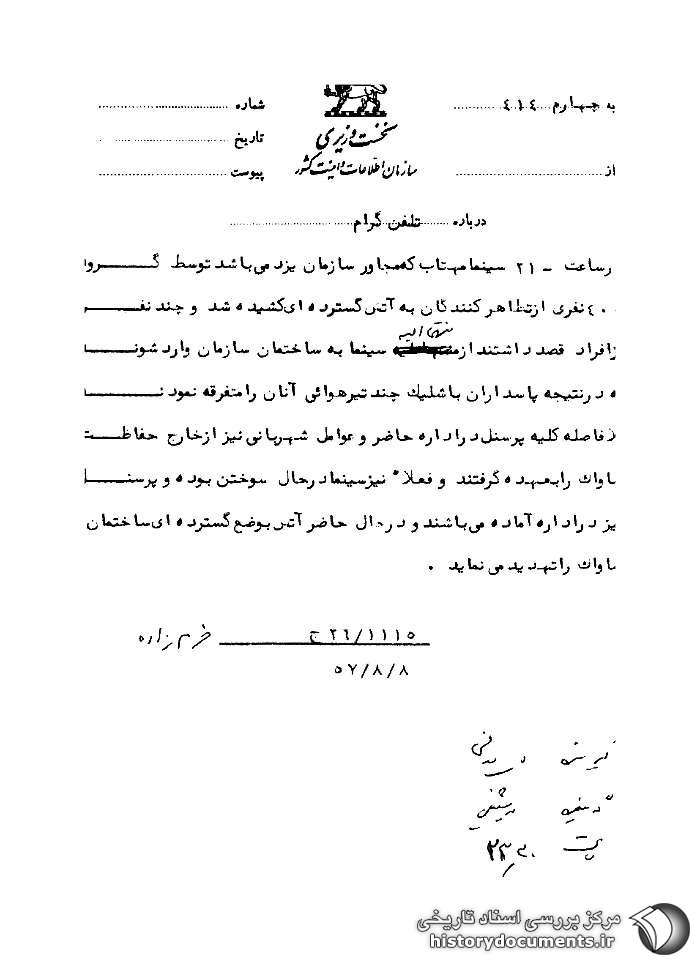 به چهارم ٤١٤
شماره
نخست وزیری
تاریخ
سازمان اطلاعات و امنیت کشور
از
پیوست
درباره تلفن گرام
رساعت - ٢١ سینما مهتاب که مجاور سازمان یزد می باشد توسط گروه
٤٠ نفری از تظاهر کنندگان به آتش گسترده ای کشیده شد و چند نفر
زافراد قصد داشتند از سینما به ساختمان سازمان وارد شوند
ه درنتیجه پاسداران با شلیك چند تیر هوائی آنان را متفرقه نمودند
فاصله کلیه پرسنل در اداره حاضر و عوامل شهربانی نیز از خارج حفاظت
ساواك را بعهده گرفتند و فعلاً نیز سینما درحال سوختن بوده و پرسنل
یز در اداره آماده می باشند و درحال حاضر آتش بوضع گسترده ای ساختمان
ساواك را تهدید می نماید .
٢٦/١١١٥ ج خرم زاده
٥٧/٨/٨
مرکز بررسی اسناد تاریخی
historydocuments.ir